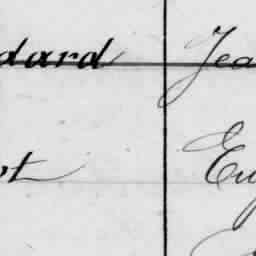 dard Jea
ot Eu